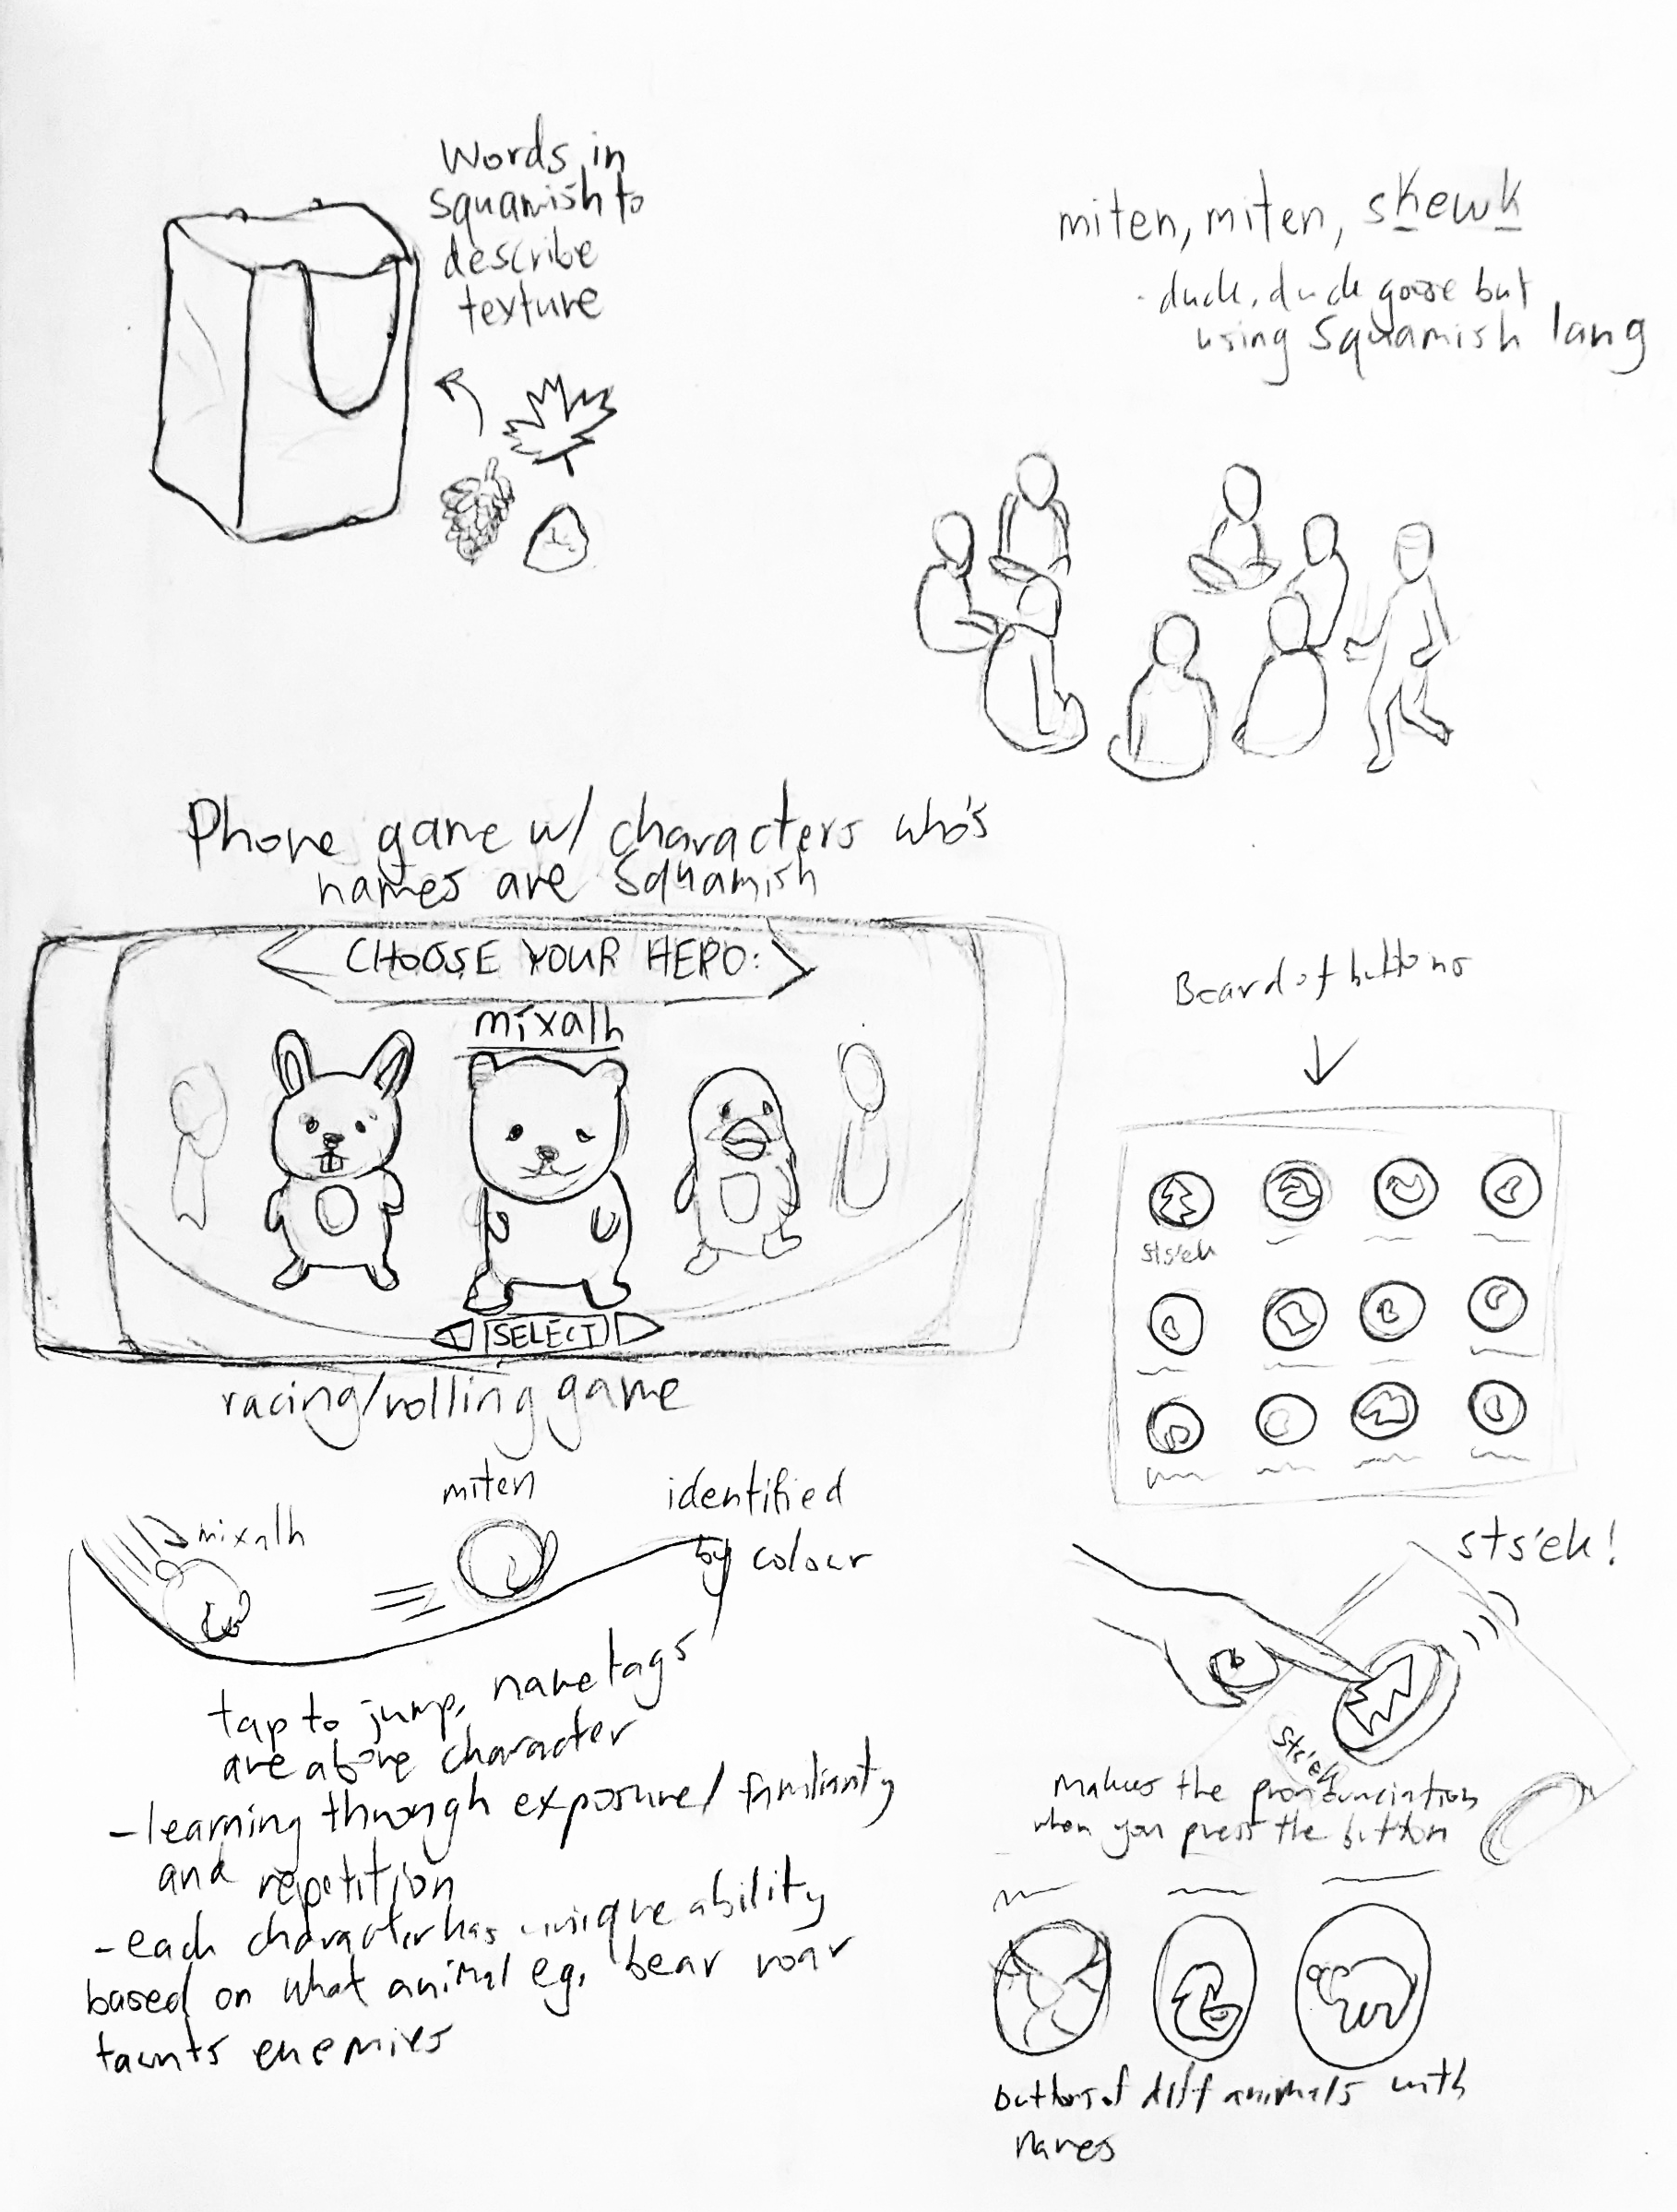 Words in
squamish to
describe
texture
miten, miten, s<u>k</u>ew<u>k</u>
- duck, duck goose but
using Squamish lang
Phone game w/ characters who's
names are Squamish
CHOOSE YOUR HERO:
mixalh
SELECT
racing/rolling game
mixalh
miten
identified
by colour
tap to jump, name tags
are above character
- learning through exposure/familiarity
and repetition
- each character has unique ability
based on what animal eg. bear roar
taunts enemies
Board of buttons
sts'ek
sts'ek!
sts'ek
makes the pronunciation
when you press the button
buttons of diff animals with
names